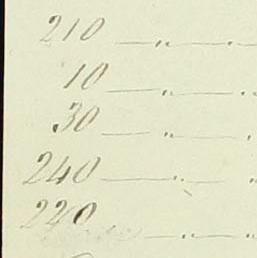 210 — „ — „
10 — „ — „
30 — „ — „
240 — „ — „
220 — „ — „